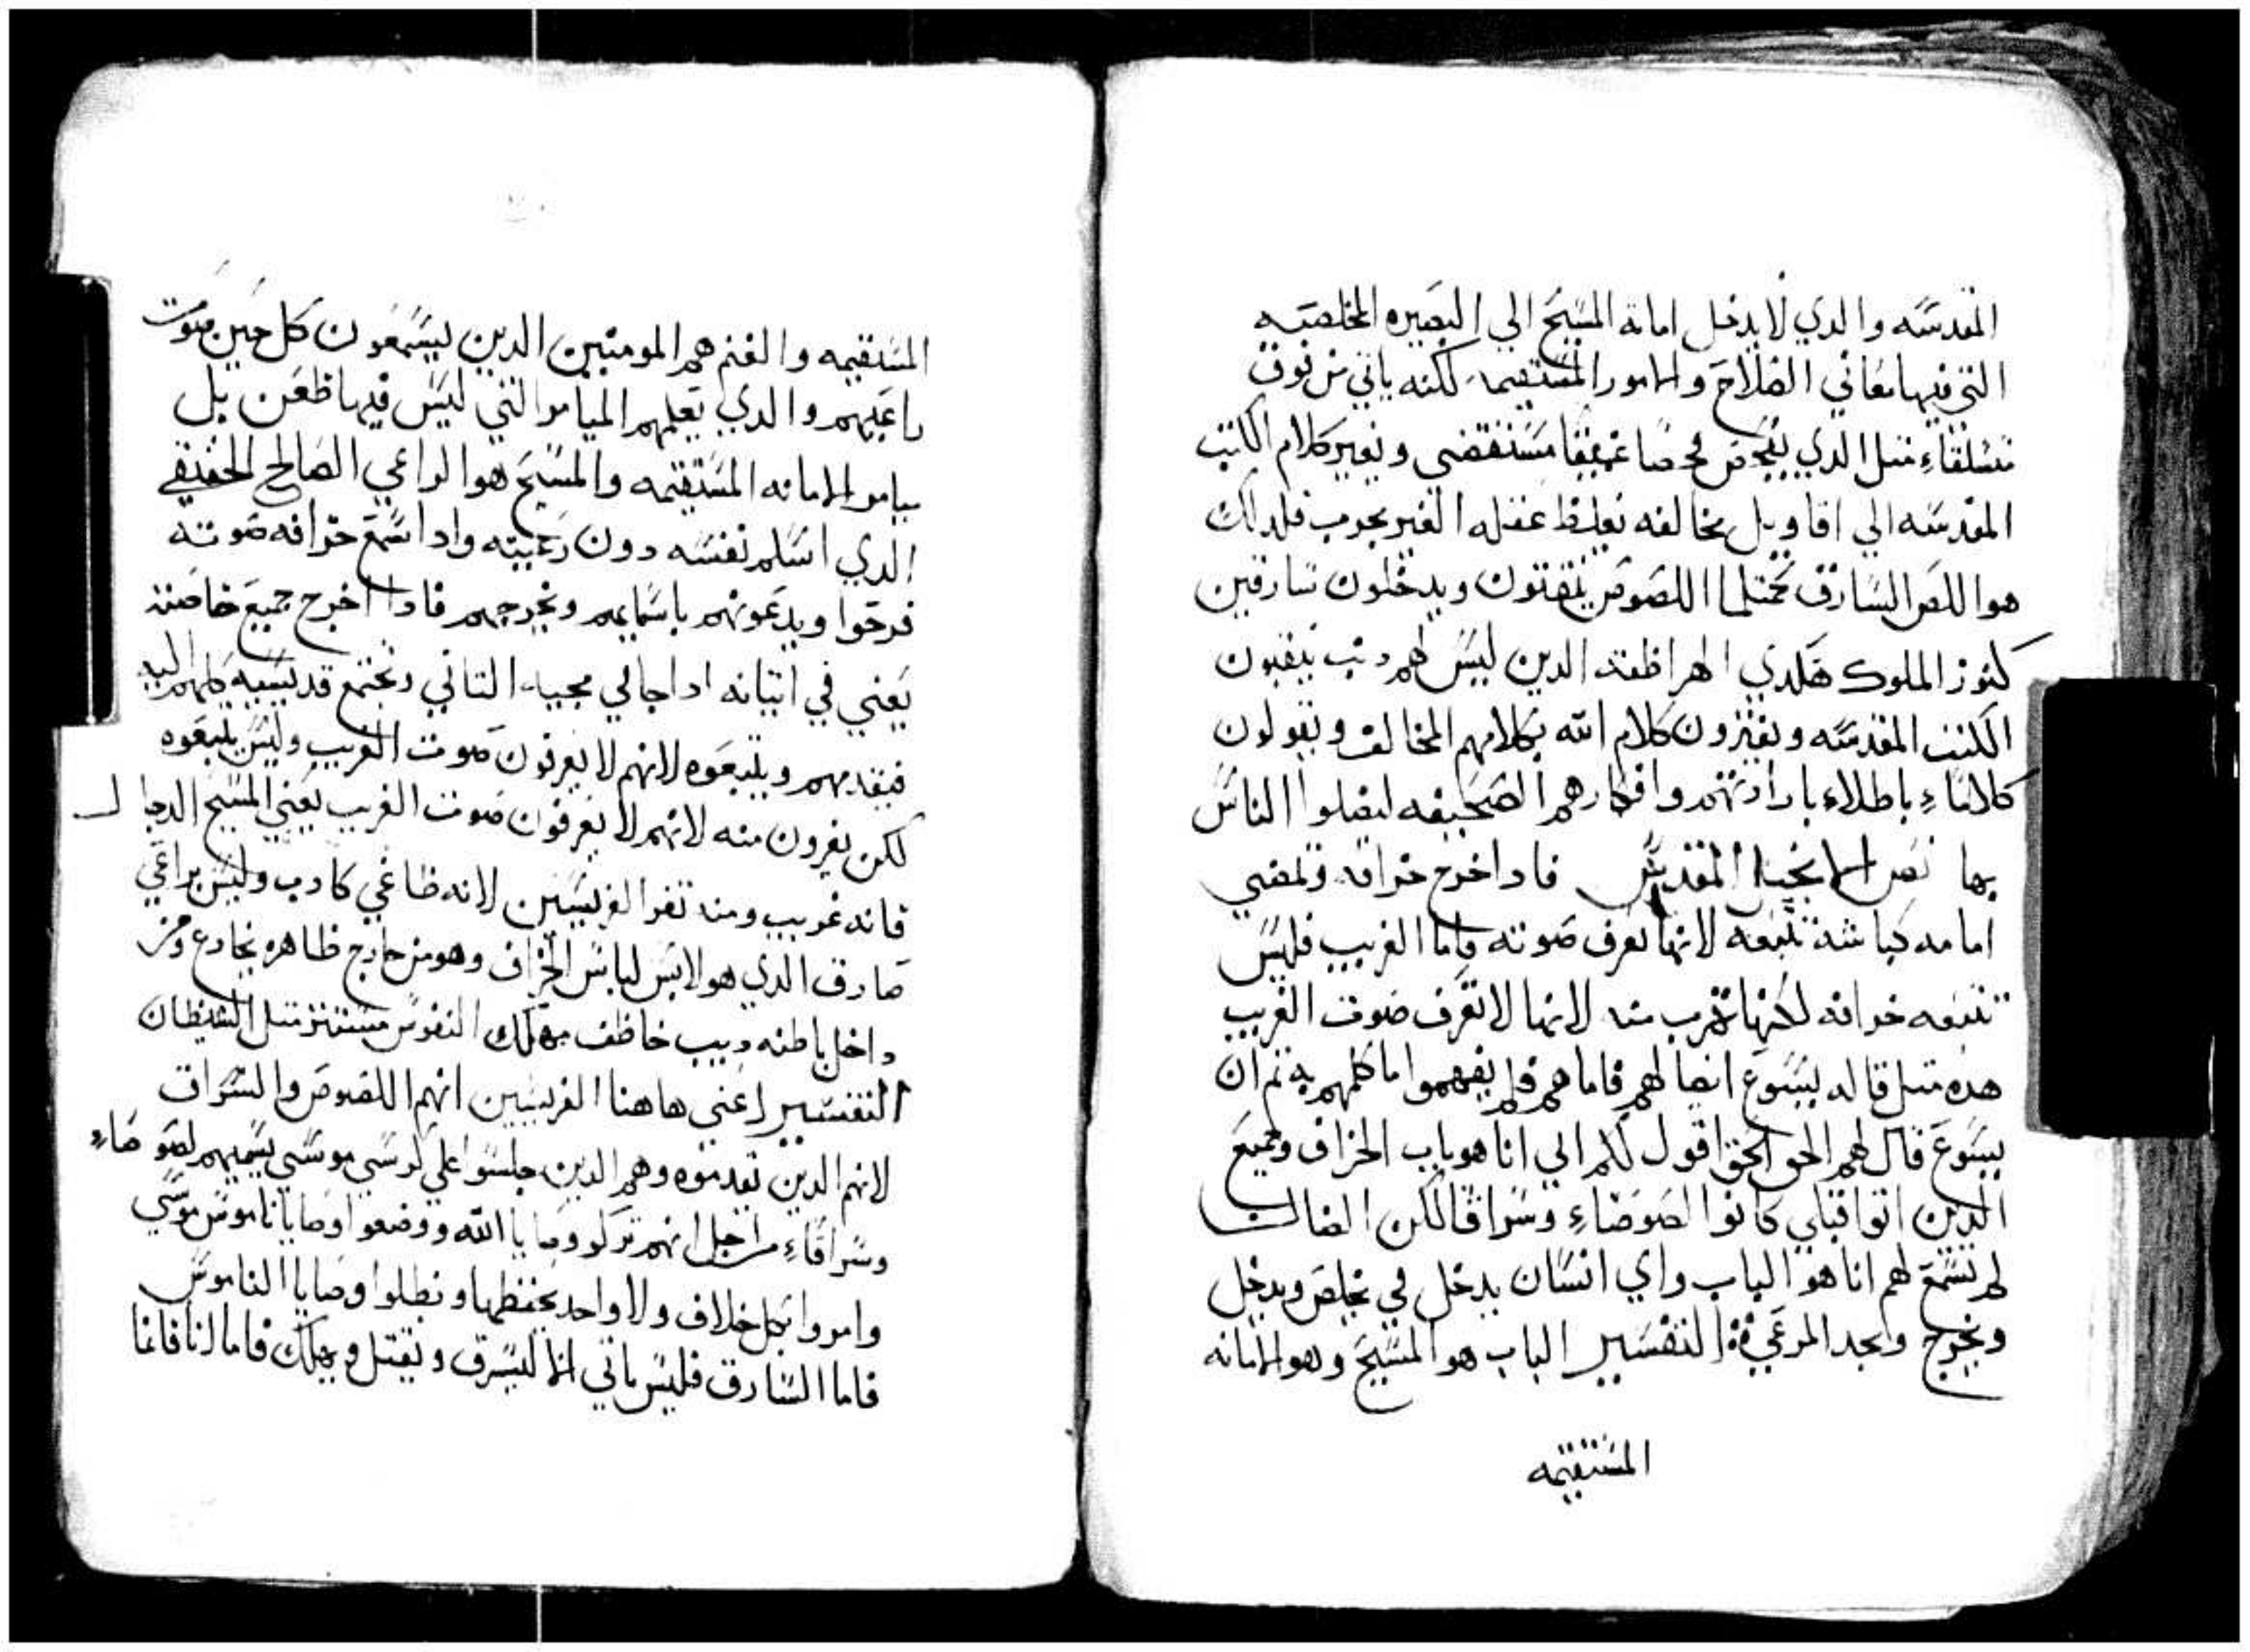 المقدسه والدي لا يدخل امانة المسيح الي البصيره المخلصه
التي فيها معاني الصلاح والامور المستقيمه لكنه ياتي من فوق
متسلقاء متل الدي يفحص فحصا عميقا مستقضي ويغير كلام الكتب
المقدسه الي اقاويل مخالفه بغلظ عقله الغير مجرب فلدلك
هوا اللص السارق كمتلما اللصوص ينقبون ويدخلون سارقين
كنوز الملوك هكدي الهراطقه الدين ليس لهم دين ينقبون
الكتب المقدسه ويفسرون كلام الله بكلامهم المخالف ويقولون
كلاماء باطلاء بارادتهم وافكارهم السخيفه ليضلوا الناس
بها نص الانجيل المقدس فادا اخرج خرافه ويمضي
امامه كباشه تتبعه لانها تعرف صوته واما الغريب فليس
تتبعه خرافه لكنها تهرب منه لانها لا تعرف صوت الغريب
هده متل قاله يسوع ايضا لهم فاما هم فلم يفهموا ما كلمهم به تم ان
يسوع قال لهم الحق الحق اقول لكم اني انا هو باب الخراف وجميع
الدين اتوا قبلي كانوا لصوصاء وسراقا لكن الضان
لم تسمع لهم انا هو الباب واي انسان يدخل في يخلص ويدخل
ويخرج ويجد المرعي التفسير الباب هو المسيح وهو الامانه
المستقيمه
المستقيمه والغنم هم المومنين الدين يسمعون كل حين صوت
راعيهم والدي تعلمهم الميامر التي ليس فيها طعن بل
بيامر الامانه المستقيمه والمسيح هوا الراعي الصالح الحقيقي
الدي اسلم نفسه دون رعيته وادا سمع خرافه صوته
فرحوا ويدعونهم باسمايهم ويخرجهم فادا اخرج جميع خاصته
يعني في اتيانه ادا جا في مجيه التاني وتجتمع قديسيه كلهم اليه
فيقدمهم ويتبعوه لانهم لا يعرفون صوت الغريب وليس يتبعوه
لكن يفرون منه لانهم لا يعرفون صوت الغريب يعني المسيح الدجال
فانه غريب ومنه تفر القديسين لانه طاغي كادب وليس براعي
صادق الدي هو لابس لباس الخراف وهو من خارج ظاهره يخادع ومن
داخل باطنه ديب خاطف مهلك النفوس مستتر متل الشيطان
التفسير اعني هاهنا الفريسيين انهم اللصوص والسراق
لانهم الدين تقدموه وهم الدين جلسوا علي كرسي موسي يسميهم لصوصاء
وسراقاء من اجل انهم تركو وصايا الله ووضعوا وصايا ناموس موسي
وامروا بكل خلاف ولا واحد يحفظها وبطلوا وصايا الناموس
فاما السارق فليس ياتي الا ليسرق ويقتل ويهلك فاما انا فانما